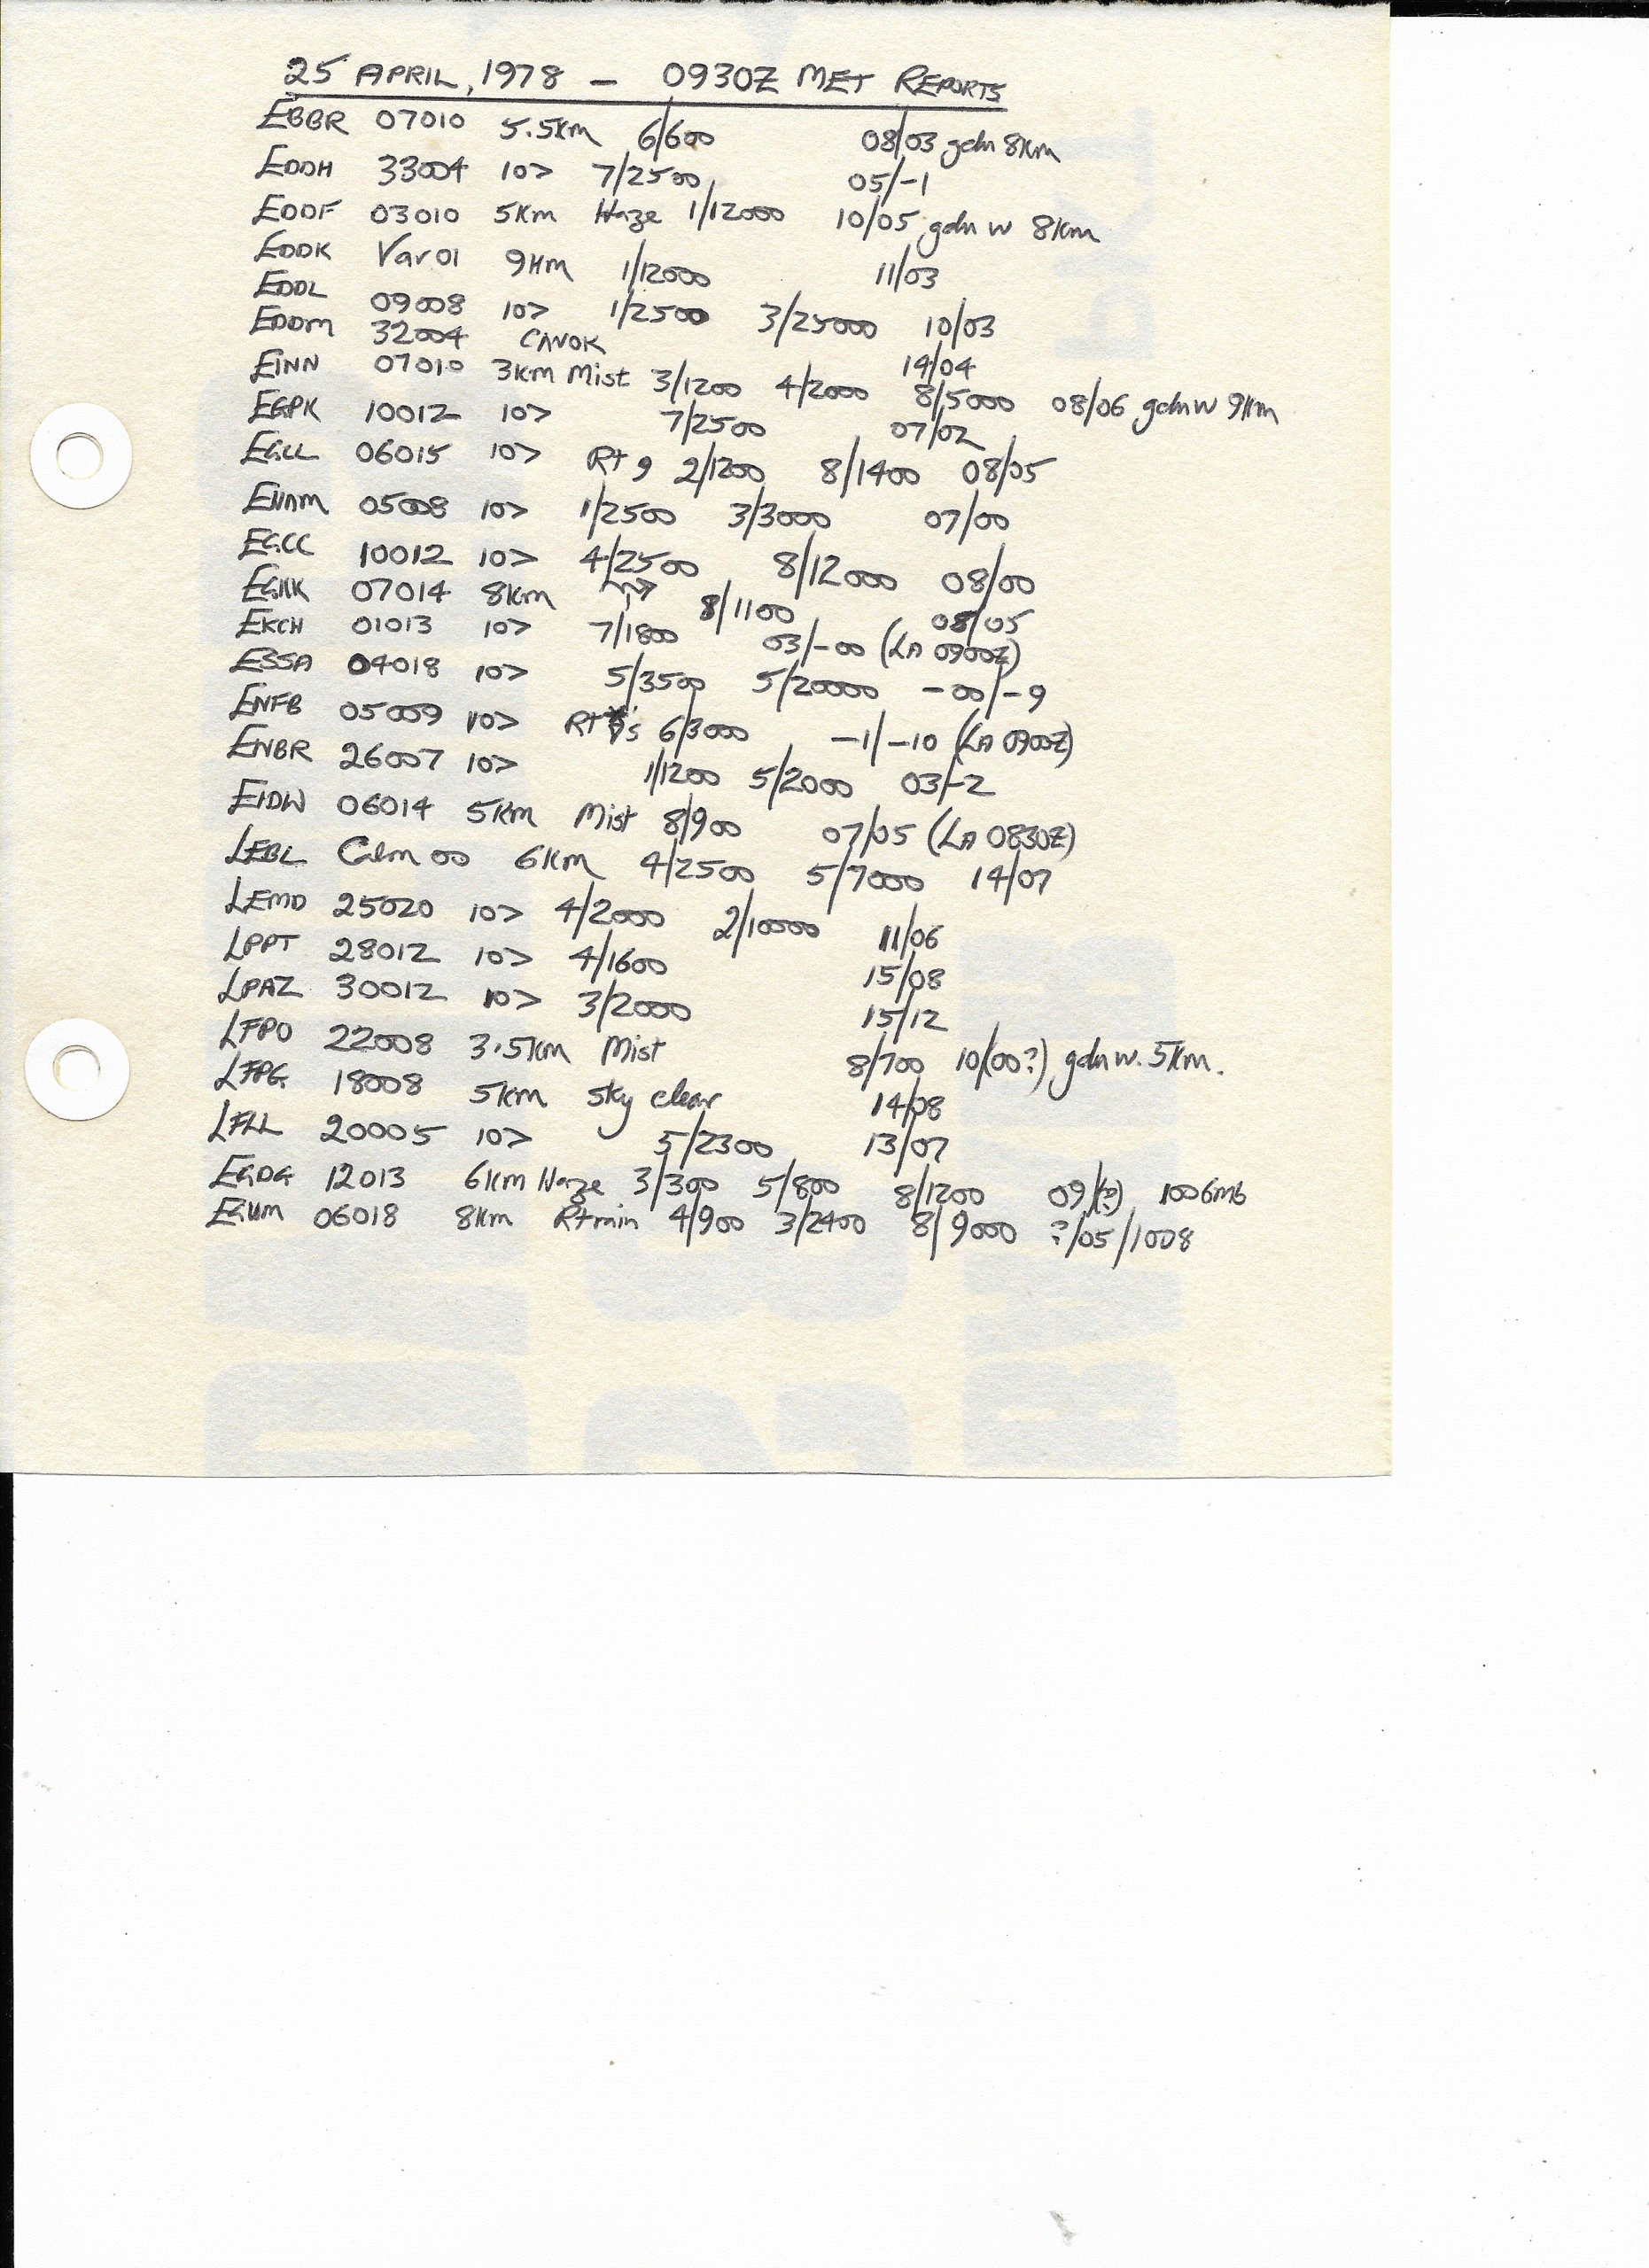 25 APRIL, 1978 – 0930Z MET REPORTS
EBBR 07010 5.5Km 6/600 08/03 gdn 8Km
EDDH 33004 10> 7/2500 05/-1
EDDF 03010 5Km Haze 1/12000 10/05 gdn w 8Km
EDDK Var 01 9Km 1/12000 11/03
EDDL 09008 10> 1/2500 3/25000 10/03
EDDM 32004 CAVOK 14/04
EINN 07010 3Km Mist 3/1200 4/2000 8/5000 08/06 gdn w 9Km
EGPK 10012 10> 7/2500 07/02
EGLL 06015 10> Rt 9 2/1200 8/1400 08/05
EHAM 05008 10> 1/2500 3/3000 07/00
EGCC 10012 10> 4/2500 8/12000 08/00
EGKK 07014 8Km 8/1100 08/05
EKCH 01013 10> 7/1800 03/-00 (LA 0900Z)
ESSA 04018 10> 5/3500 5/20000 -00/-9
ENFB 05009 10> Rt 6/3000 -1/-10 (LA 0900Z)
ENBR 26007 10> 1/1200 5/2000 03/-2
EIDW 06014 5Km Mist 8/900 07/05 (LA 0830Z)
LEBL Calm 00 6Km 4/2500 5/7000 14/07
LEMD 25020 10> 4/2000 2/10000 11/06
LPPT 28012 10> 4/1600 15/08
LPAZ 30012 10> 3/2000 15/12
LFPO 22008 3.5Km Mist 8/700 10/(00?) gdn w. 5Km.
LFPG 18008 5Km sky clear 14/08
LFLL 20005 10> 5/2300 13/07
EGDG 12013 6Km Haze 3/300 5/800 8/1200 09/(?) 1006mb
EGUM 06018 8Km Rt rain 4/900 3/2400 8/9000 ?/05/1008